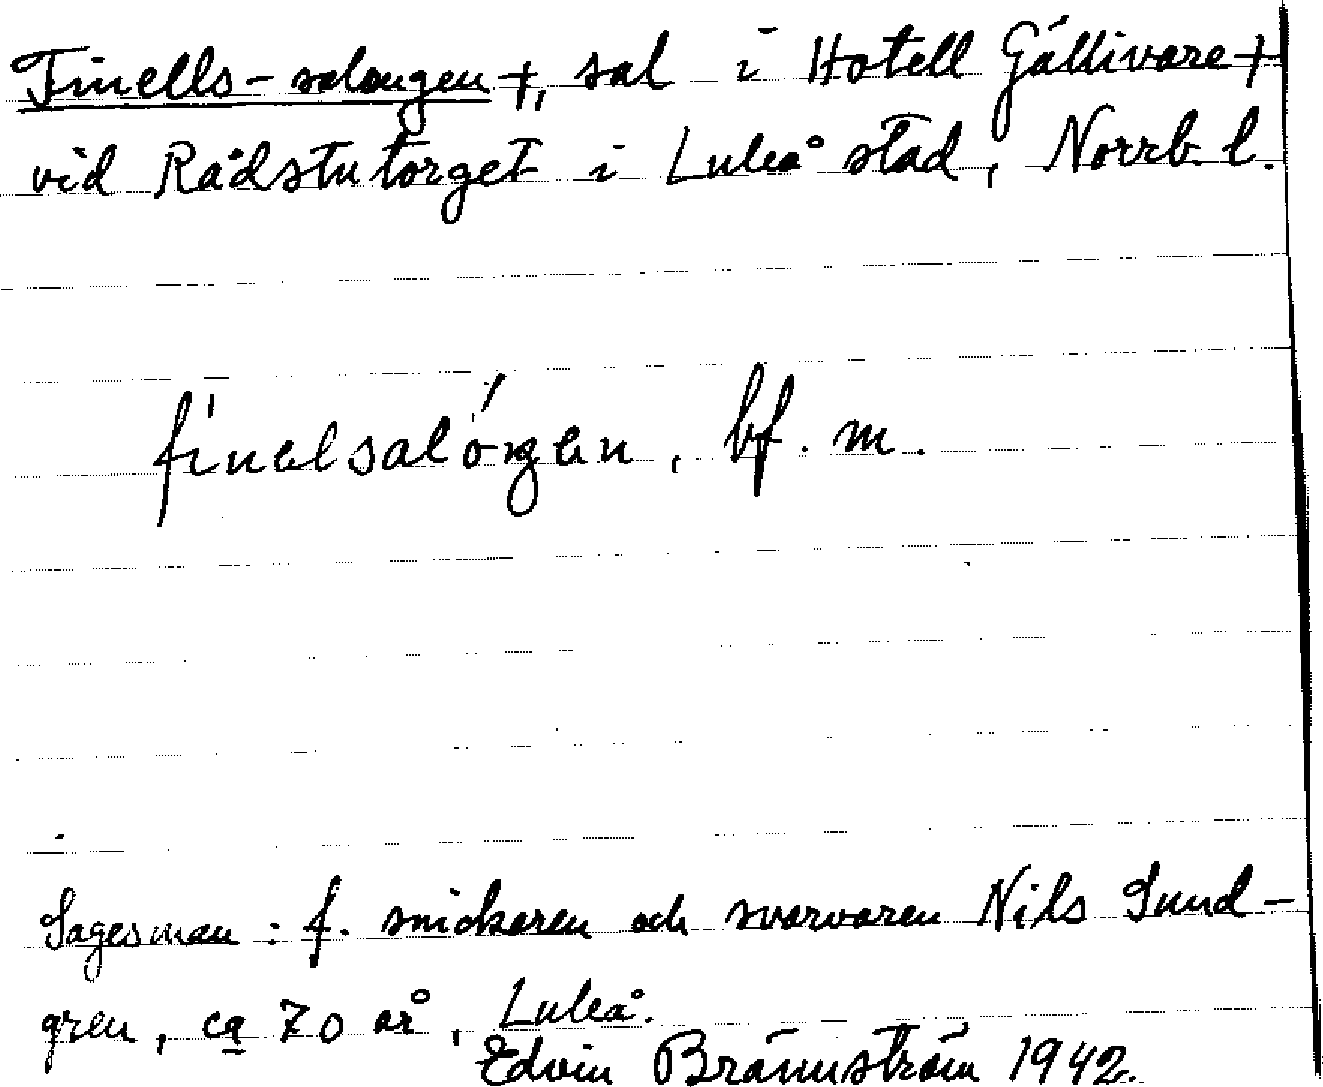 Finells-salongen +, sal i Hotell Gällivare +
vid Rådstutorget i Luleå stad, Norrb. l.
finelsalóŋen, bf. m.
Sagesman: f. snickaren och svarvaren Nils Sund-
gren, ca 70 år, Luleå.
Edvin Brännström 1942.